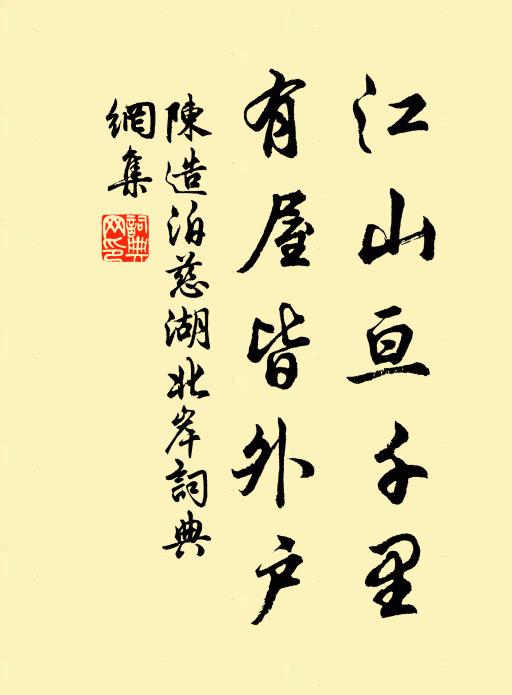 江山亘千里
有屋皆外户
陳造泊慈湖北岸詞典
網集
詞典網印